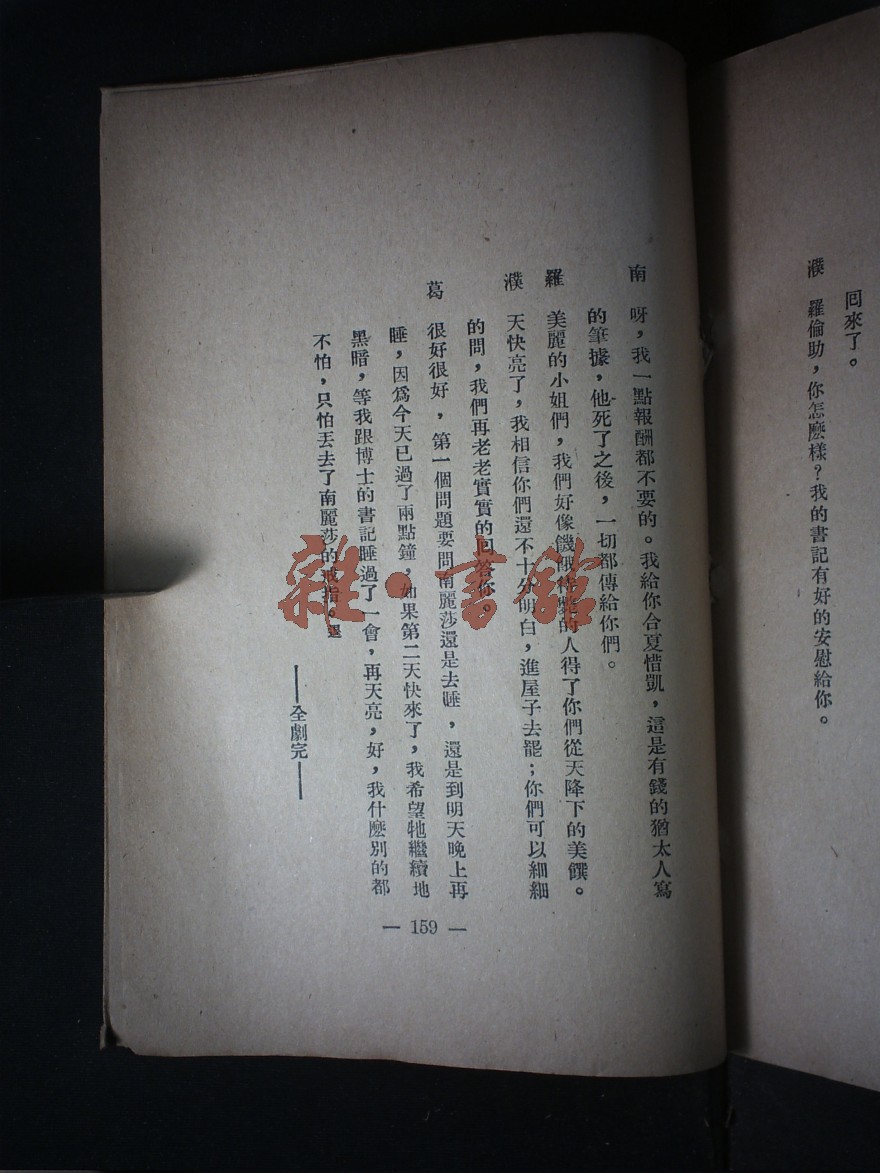 回來了。
濮 羅倫助，你怎麼樣？我的書記有好的安慰給你。
南 呀，我一點報酬都不要的。我給你合夏惜凱，這是有錢的猶太人寫
的筆據，他死了之後，一切都傳給你們。
羅 美麗的小姐們，我們好像饑餓待斃的人得了你們從天降下的美饌。
濮 天快亮了，我相信你們還不十分明白，進屋子去罷；你們可以細細
的問，我們再老老實實的回答你。
葛 很好很好，第一個問題要問南麗莎還是去睡，還是到明天晚上再
睡，因爲今天已過了兩點鐘，如果第二天快來了，我希望牠繼續地
黑暗，等我跟博士的書記睡過了一會，再天亮，好，我什麼別的都
不怕，只怕丟去了南麗莎的戒指。退
——全劇完——
— 159 —
雜·書館